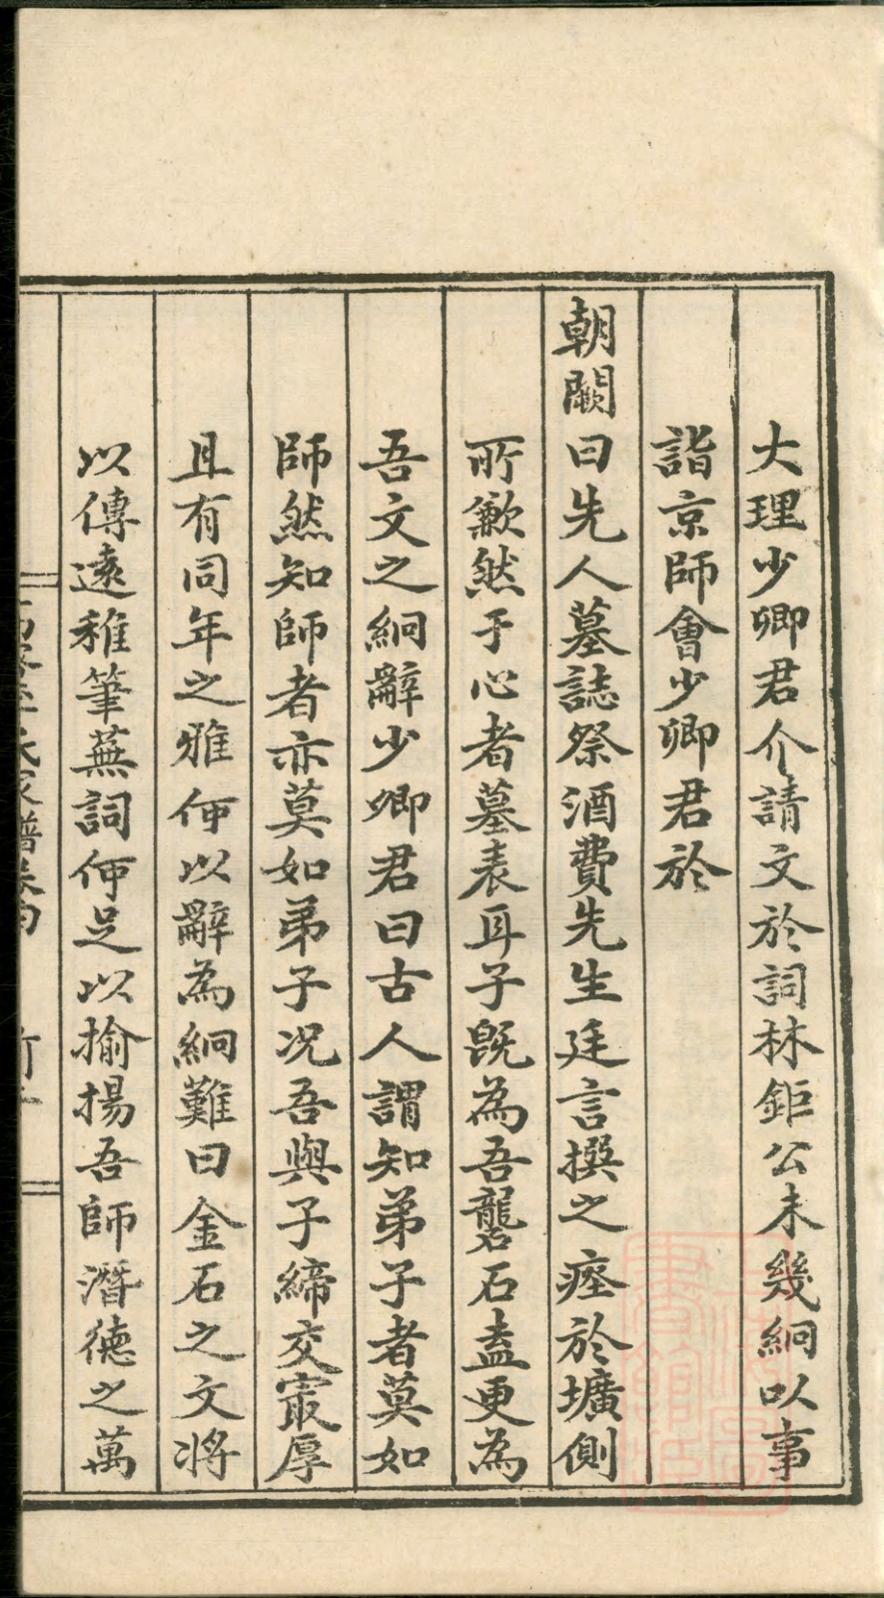 大理少卿君介請文於詞林鉅公未幾絅以事
詣京師會少卿君於
朝闕曰先人墓誌祭酒費先生廷言撰之瘞於壙側
所歉然于心者墓表耳子既為吾礱石盍更為
吾文之絅辭少卿君曰古人謂知弟子者莫如
師然知師者亦莫如弟子况吾與子締交㝡厚
且有同年之雅何以辭為絅難曰金石之文将
以傳遠稚筆蕪詞何足以揄揚吾師潛德之萬